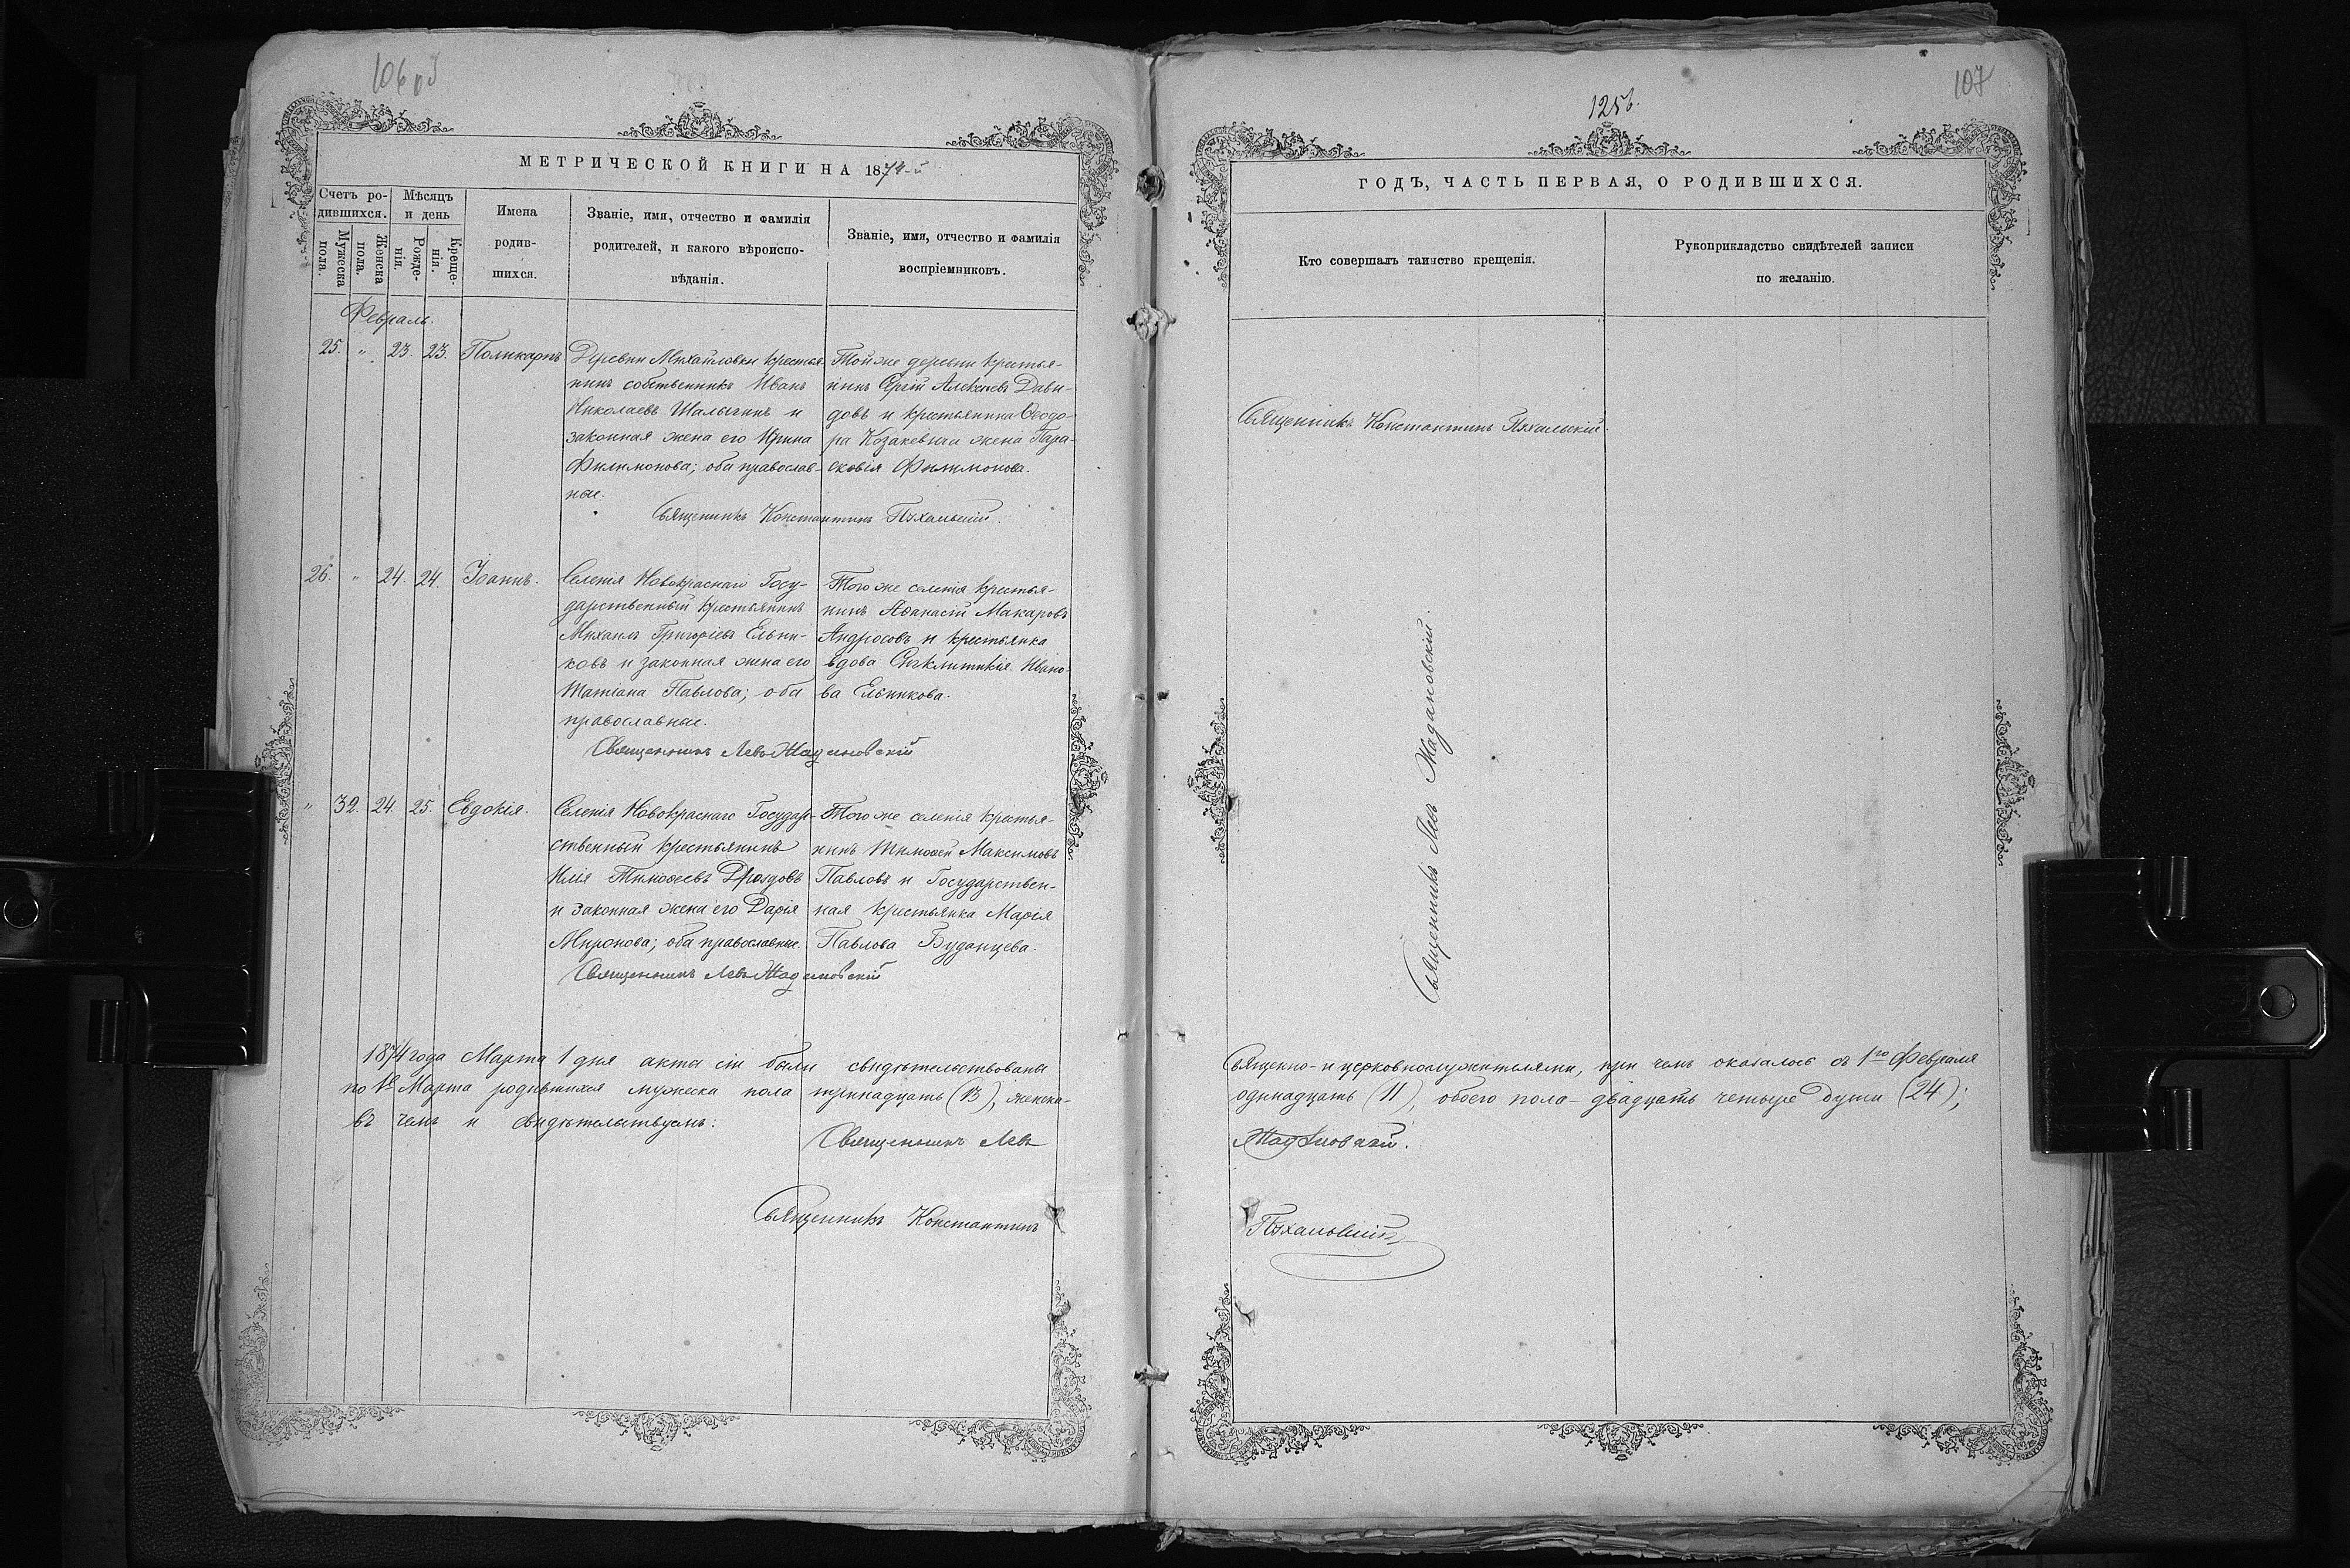 106 об
МЕТРИЧЕСКОЙ КНИГИ НА 1874-й
Счетъ ро-
дившихся.
Мужеска
пола.
Женска
пола.
Мѣсяцъ
и день
Рожде-
нія.
Креще-
нія.
Имена
родив-
шихся.
Званіе, имя, отчество и фамилія
родителей, и какого вѣроиспо-
вѣданія.
Званіе, имя, отчество и фамилія
воспріемниковъ.
Февраль.
25. " 23. 23. Поликарпъ
Деревни Михайловки крестья-
нинъ собственникъ Иванъ
Николаевъ Шалыгинъ и
законная жена его Ирина
Филимонова; оба православ-
ные.
Той же деревни крестья-
нинъ Сергій Алексѣевъ Дави-
довъ и крестьянина Ѳеодо-
ра Козакевича жена Пара-
сковія Филимонова.
Священникъ Константинъ Пухальскій.
26. " 24. 24. Іоаннъ.
Селенія Новокраснаго Госу-
дарственный крестьянинъ
Михаилъ Григоріевъ Ельни-
ковъ и законная жена его
Татіана Павлова; оба
православные.
Того же селенія крестья-
нинъ Аѳанасій Макаровъ
Андросовъ и крестьянка
вдова Синклитикія Ивано-
ва Ельникова.
Священникъ Левъ Жадановскій
" 32. 24 25. Евдокія.
Селенія Новокраснаго Государ-
ственный крестьянинъ
Илія Тимоѳеевъ Дроздовъ
и законная жена его Дарія
Миронова; оба православные.
Того же селенія крестья-
нинъ Тимоѳей Максимовъ
Павловъ и Государствен-
ная крестьянка Марія
Павлова Буданцева.
Священникъ Левъ Жадановскій
1874 года Марта 1 дня акты сіи были свидѣтельствованы
по 1е Марта родившихся мужеска пола тринадцать (13), женска-
въ чемъ и свидѣтельствуемъ:
Священникъ Левъ
Священникъ Константинъ
107
125
ГОДЪ, ЧАСТЬ ПЕРВАЯ, О РОДИВШИХСЯ.
Кто совершалъ таинство крещенія.
Рукоприкладство свидѣтелей записи
по желанію.
Священникъ Константинъ Пухальскій.
Священникъ Левъ Жадановскій
Священно- и церковнослужителями, при чемъ оказалось съ 1го Февраля
одинадцать (11), обоего пола- двадцать четыре души (24);
Жадановскій.
Пухальскій